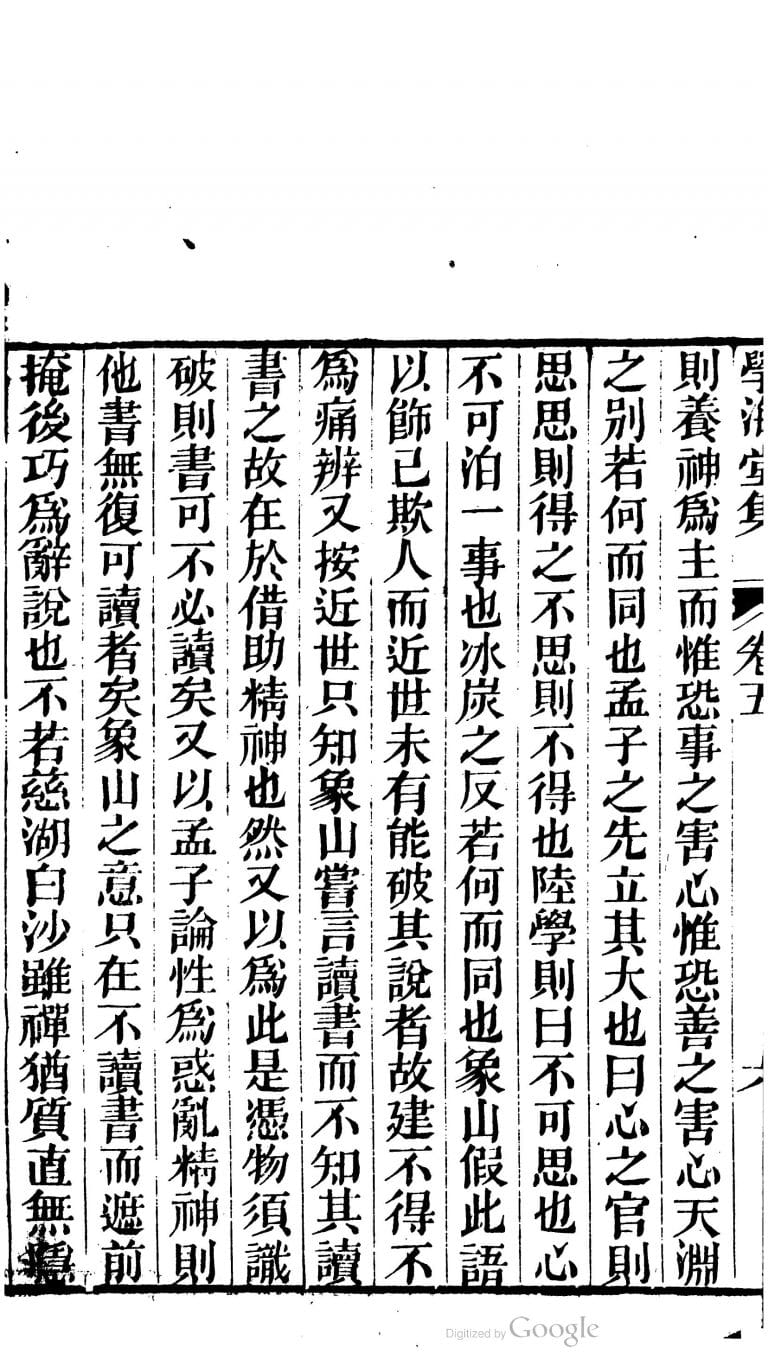 學海堂集
卷五
六
則養神爲主而惟恐事之害心惟恐善之害心天淵
之别若何而同也孟子之先立其大也曰心之官則
思思則得之不思則不得也陸學則曰不可思也心
不可泊一事也冰炭之反若何而同也象山假此語
以飾己欺人而近世未有能破其說者故建不得不
爲痛辨又按近世只知象山嘗言讀書而不知其讀
書之故在於借助精神也然又以爲此是憑物須識
破則書可不必讀矣又以孟子論性爲惑亂精神則
他書無復可讀者矣象山之意只在不讀書而遮前
掩後巧爲辭說也不若慈湖白沙雖禪猶質直無
Digitized by Google